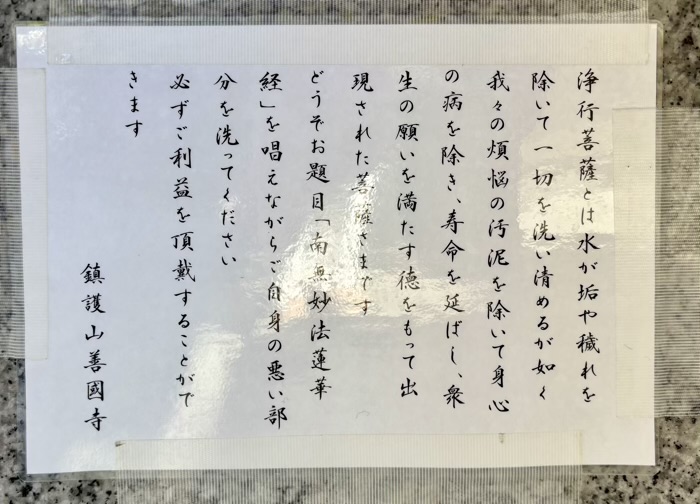 浄行菩薩とは水が垢や穢れを
除いて一切を洗い清めるが如く
我々の煩悩の汚泥を除いて身心
の病を除き、寿命を延ばし、衆
生の願いを満たす徳をもって出
現された菩薩さまです
どうぞお題目「南無妙法蓮華
経」を唱えながらご自身の悪い部
分を洗ってください
必ずご利益を頂戴することがで
きます
鎮護山善國寺